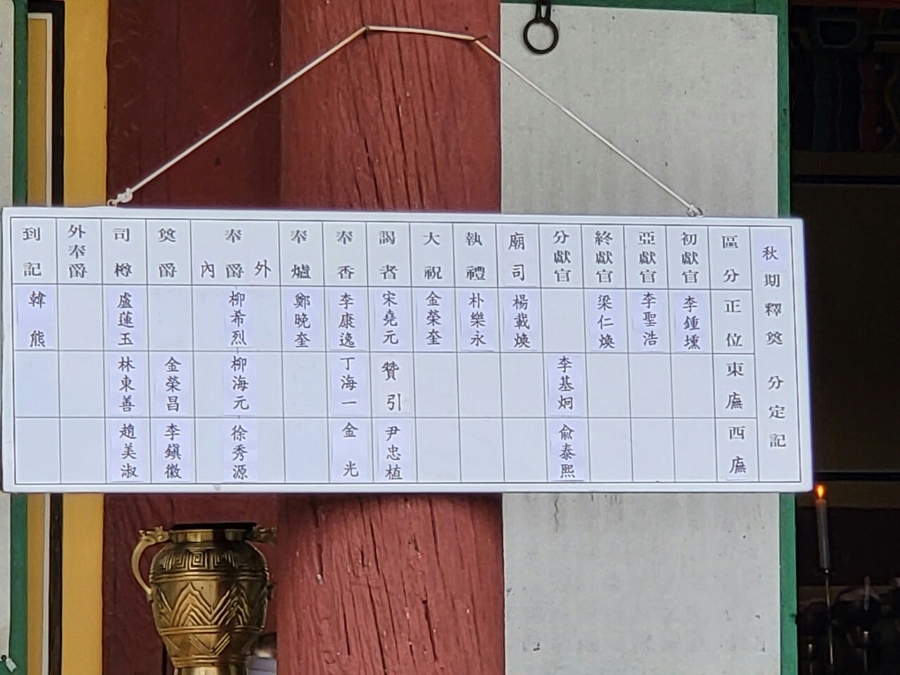 秋期釋奠 分定記
區分 正位 東廡 西廡
初獻官 李鍾壎
亞獻官 李聖浩
終獻官 梁仁煥
分獻官 李基炯 兪泰熙
廟司 楊載煥
執禮 朴樂永
大祝 金榮奎
謁者 宋堯元 贊引 尹忠植
奉香 李康逸 丁海一 金光
奉爐 鄭晩奎
奉爵 外 內 柳希烈 柳海元 徐秀源
奠爵 金榮昌 李鎭徽
司樽 盧蓮玉 林東善 趙美淑
外奉爵
到記 韓熊